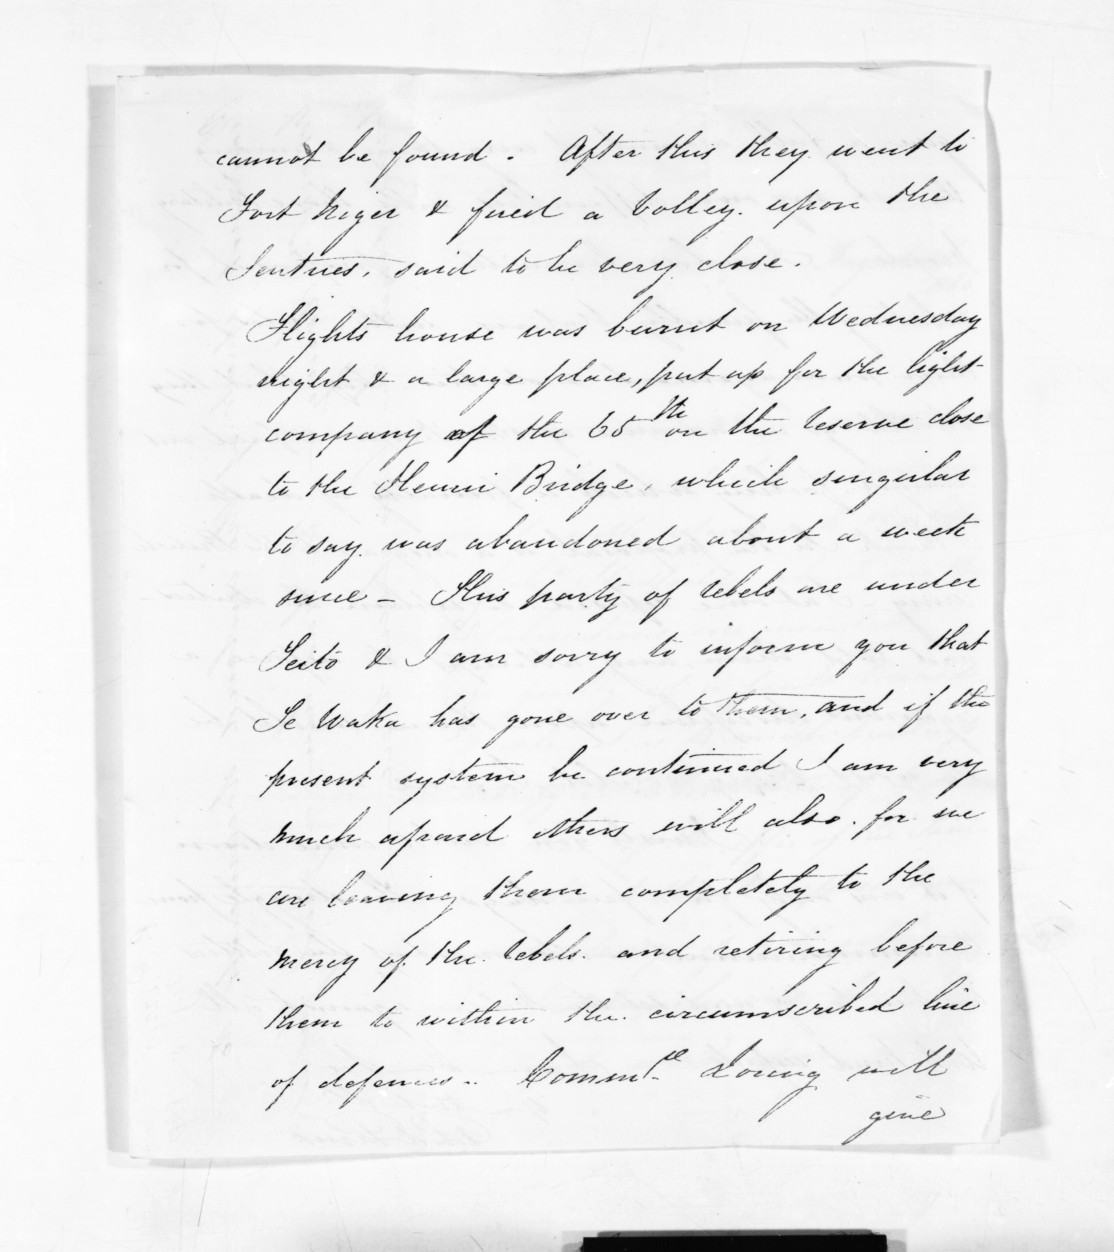 cannot be found. After this they went to
Fort Niger & fired a Volley upon the
Sentries, said to be very close.
Flights house was burnt on Wednesday
night & a large place, put up for the light
company of the 65th on the reserve close
to the Henui Bridge, which singular
to say was abandoned about a week
since - This party of rebels are under
Teito & I am sorry to inform you that
Te Waka has gone over to them, and if the
present system be continued I am very
much afraid others will also. for we
are leaving them completely to the
mercy of the rebels. and retiring before
them to within the circumscribed line
of defences.. Comm.re Loring will
give